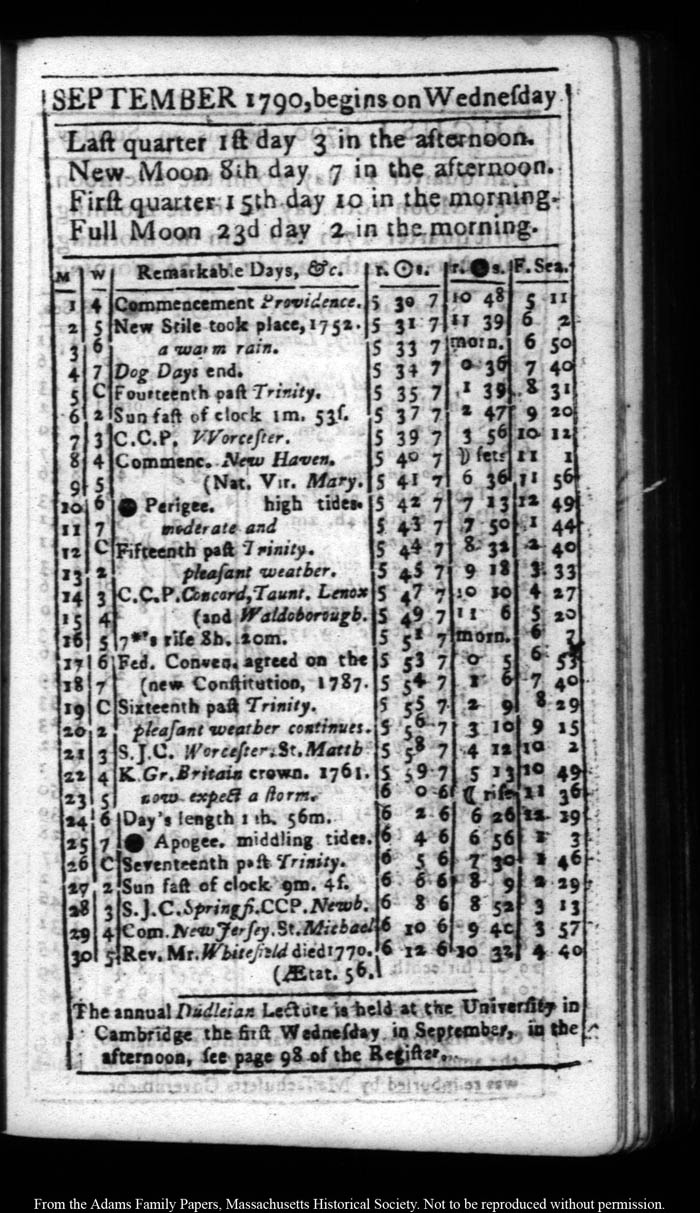 SEPTEMBER 1790, begins on Wedneſday
Laſt quarter 1ſt day 3 in the afternoon.
New Moon 8th day 7 in the afternoon.
Firſt quarter 15th day 10 in the morning.
Full Moon 23d day 2 in the morning.
M W Remarkable Days, &c. r. ☉s. r. ●s. F. Sea.
1 4 Commencement Providence. 5 30 7 10 48 5 11
2 5 New Stile took place, 1752. 5 31 7 11 39 6 2
3 6 a warm rain. 5 33 7 morn. 6 50
4 7 Dog Days end. 5 34 7 0 36 7 40
5 C Fourteenth paſt Trinity. 5 35 7 1 39 8 31
6 2 Sun faſt of clock 1m. 53ſ. 5 37 7 2 47 9 20
7 3 C.C.P. Worceſter. 5 39 7 3 56 10 12
8 4 Commenc. New Haven. 5 40 7 ☽ ſets 11 1
9 5 (Nat. Vir. Mary. 5 41 7 6 36 11 56
10 6 ● Perigee. high tides. 5 42 7 7 13 12 49
11 7 moderate and 5 43 7 7 50 1 44
12 C Fifteenth paſt Trinity. 5 44 7 8 32 2 40
13 2 pleaſant weather. 5 45 7 9 18 3 33
14 3 C.C.P. Concord, Taunt. Lenox 5 47 7 10 10 4 27
15 4 (and Waldoborough. 5 49 7 11 6 5 20
16 5 7*'s riſe 8h. 20m. 5 51 7 morn. 6 7
17 6 Fed. Conven. agreed on the 5 53 7 0 5 6 53
18 7 (new Conſtitution, 1787. 5 54 7 1 6 7 40
19 C Sixteenth paſt Trinity. 5 55 7 2 9 8 29
20 2 pleaſant weather continues. 5 56 7 3 10 9 15
21 3 S.J.C. Worceſter. St. Matth 5 58 7 4 12 10 2
22 4 K. Gr. Britain crown. 1761. 5 59 7 5 13 10 49
23 5 now expect a ſtorm. 6 0 6 ☾ riſe 11 36
24 6 Day's length 11h. 56m. 6 2 6 6 26 12 19
25 7 ● Apogee. middling tides. 6 4 6 6 56 1 3
26 C Seventeenth paſt Trinity. 6 5 6 7 30 1 46
27 2 Sun faſt of clock 9m. 4ſ. 6 6 6 8 9 2 29
28 3 S.J.C. Springfi. CCP. Newb. 6 8 6 8 52 3 13
29 4 Com. New Jerſey. St. Michael 6 10 6 9 40 3 57
30 5 Rev. Mr. Whitefield died 1770. 6 12 6 10 32 4 40
(Ætat. 56.
The annual Dudleian Lecture is held at the Univerſity in
Cambridge the firſt Wedneſday in September, in the
afternoon, ſee page 98 of the Regiſter.
From the Adams Family Papers, Massachusetts Historical Society. Not to be reproduced without permission.